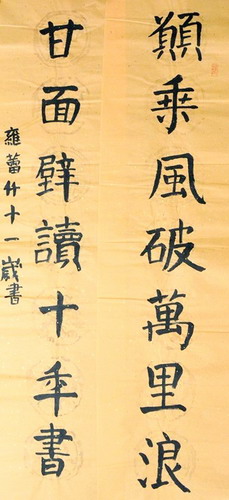 顚乗風破萬里浪
甘面壁讀十年書
雍蕾廿十一歲書